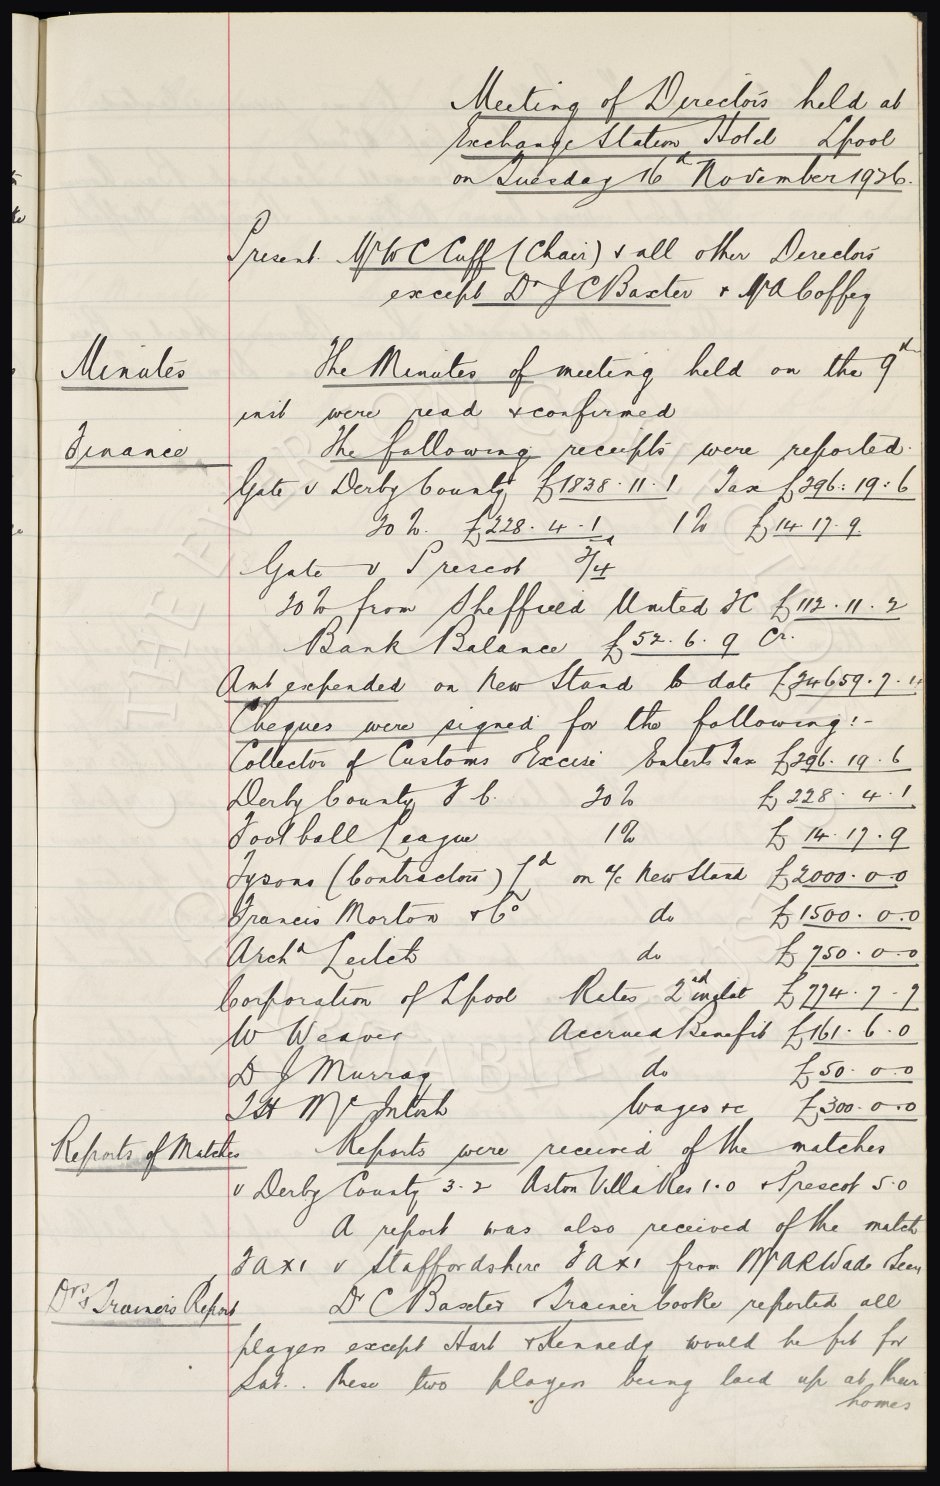 Meeting of Directors held at
Exchange Station Hotel Lpool
on Tuesday 16th November 1926.
Present. Mr W C Cuff (Chair) & all other Directors
except Dr J C Baxter & Mr A Coffey
Minutes
The Minutes of meeting held on the 9th
inst were read & confirmed
Finance
The following receipts were reported.
Gate v Derby County £1838.11.1 Tax £396:19:6
20% £228.4.1 1% £14.17.9.
Gate v Prescot 3/4
20% from Sheffield United FC £112.11.2
Bank Balance £52.6.9 Cr.
Amt expended on New Stand to date £34659.7.11
Cheques were signed for the following:-
Collector of Customs & Excise Enterts Tax £396.19.6
Derby County F C. 20% £228.4.1
Football League 1% £14.17.9
Tysons (Contractors) Ld on a/c New Stand £2000.0.0
Francis Morton & Co do £1500.0.0
Archd Leitch do £750.0.0
Corporation of Lpool Rates 2nd instlat £774.7.7
W Weaver Accrued Benefit £161.6.0
D J Murray do £50.0.0
T H McIntosh Wages &c £300.0.0
Reports of Matches
Reports were received of the matches
v Derby County 3.2 Aston Villa Res 1.0 & Prescot 5.0
A report was also received of the match
F A XI v Staffordshire F A XI from Mr A R Wade Senr
Drs & Trainers Report
Dr C Baxter & Trainer Cooke reported all
players except Hart & Kennedy would be fit for
Sat. . these two players being laid up at their
homes
THE EVERTON COLLECTION
CHARITABLE TRUST